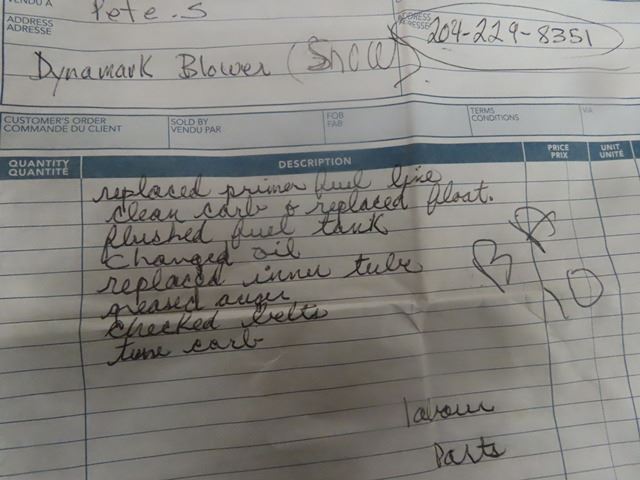 VENDU À
Pete.S
ADDRESS
ADRESSE
ADDRESS
ADRESSE
204-229-8351
Dynamark Blower (Snow)
CUSTOMER'S ORDER
COMMANDE DU CLIENT
SOLD BY
VENDU PAR
FOB
FAB
TERMS
CONDITIONS
VIA
QUANTITY
QUANTITÉ
DESCRIPTION
PRICE
PRIX
UNIT
UNITÉ
replaced primer fuel line
clean carb & replaced float.
flushed fuel tank
changed oil
replaced inner tube
greased auger
checked belts
tune carb
labour
Parts